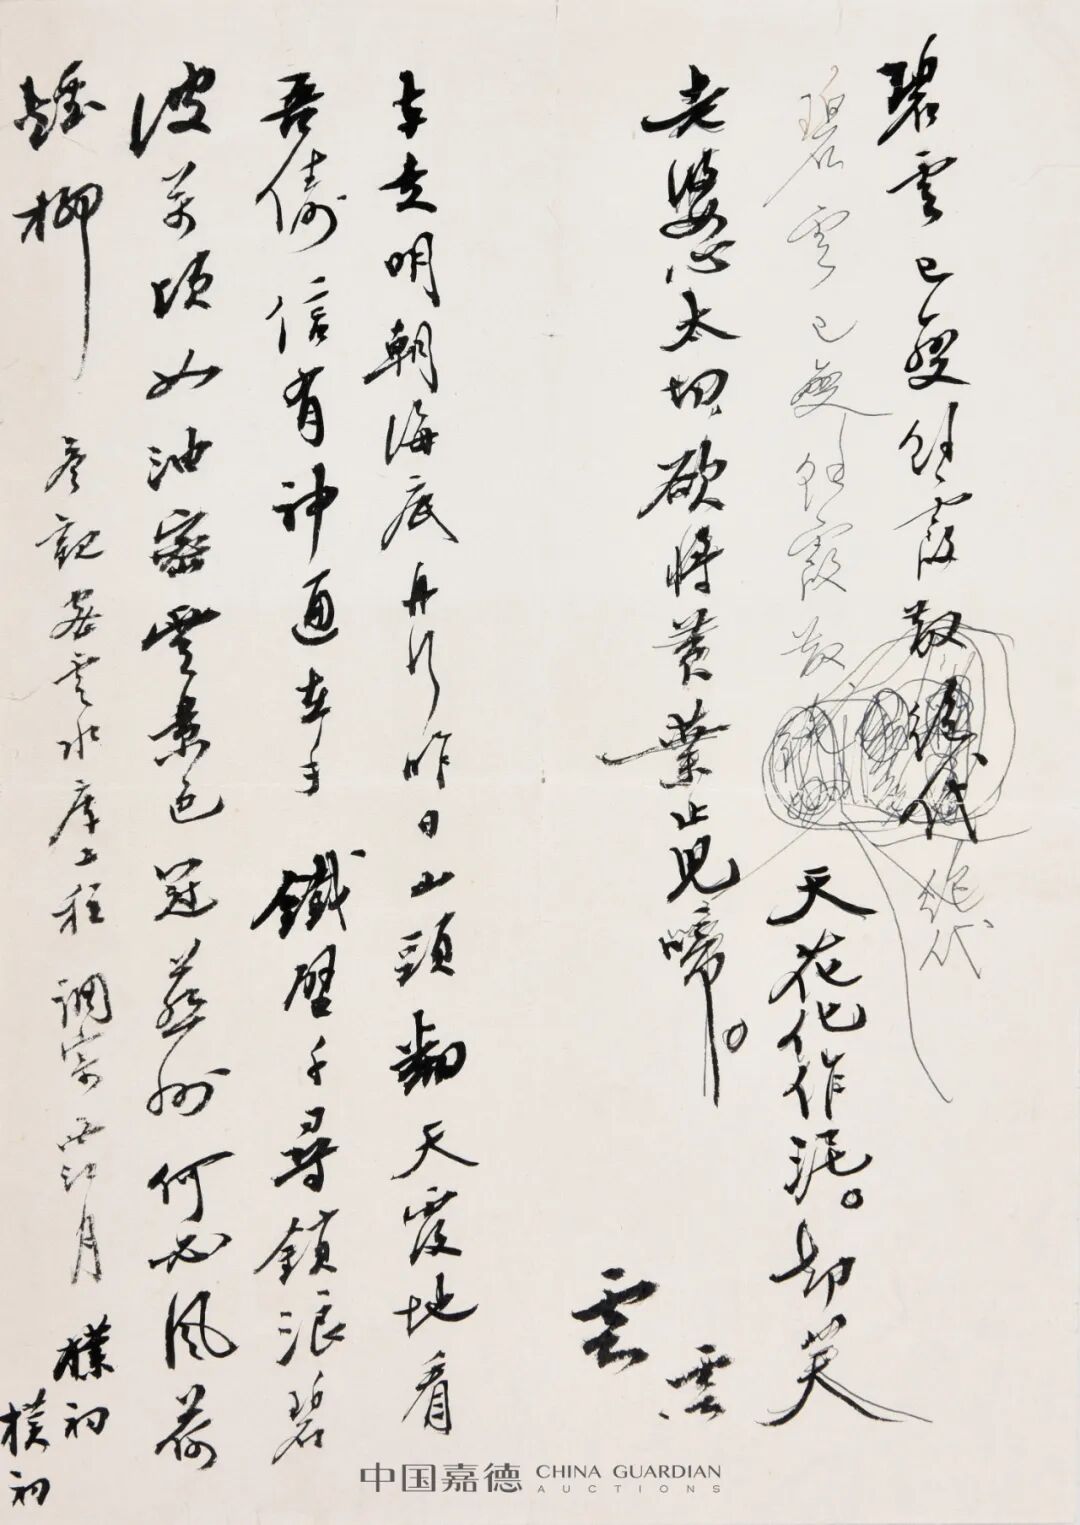 碧雲已斂餘霞散絶代
碧雲已斂餘霞散
絶代
天花化作泥。却笑
老婆心太切,欲將黄葉止兒啼。
雲
雲
車走明朝海底舟行昨日山頭翻天覆地看
吾儔信有神通在手 鐵壁千尋鎖浪碧
波萬頃如油密雲景色冠燕州何必風荷
煙柳 參觀密雲水庫工程 調寄西江月 樸初
樸初
中国嘉德 CHINA GUARDIAN
AUCTIONS